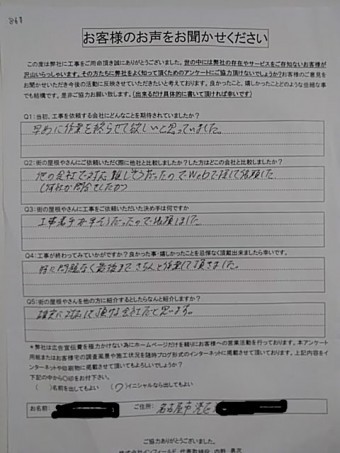 お客様のお声をお聞かせください
この度は弊社に工事をご用命頂き誠にありがとうございました。世の中には弊社の存在やサービスをご存知ないお客様が
沢山いらっしゃいます。その方たちに弊社をよく知って頂くためのアンケートにご協力頂けないでしょうか?お客様のご意見を
お聞かせいただき今後の活動に反映させていただきたいと考えております。良かったこと、嬉しかったことどのような些細な事
でも結構です。是非ご協力お願い致します。(出来るだけ具体的に書いて頂ければ幸いです)
Q1:当初、工事を依頼する会社にどんなことを期待されていましたか?
早めに作業を終らせて欲しいと思っていました。
Q2:街の屋根やさんにご依頼いただく際に他社と比較しましたか?した方はどこの会社と比較しましたか?
他の会社で
Webで探して依頼した
Q3:街の屋根やさんに工事をご依頼いただいた決め手は何ですか
工事着手が早そうだったので依頼しました
Q4:工事が終わってみていかがですか?良かった事・嬉しかったことを忌憚なく頂戴出来ましたら幸いです。
特に問題なく
作業して頂きました。
Q5:街の屋根やさんを他の方に紹介するとしたらなんと紹介しますか?
確実に
会社だと思います。
*弊社では広告宣伝費を極力かけない為にホームページだけを頼りにお客様への営業活動を行っております。本アンケート
用紙またはお客様宅の調査風景や施工状況を随時ブログ形式のインターネットに掲載させて頂いております。上記内容をイ
ンターネットや印刷物に掲載させて頂いてもよろしいでしょうか?
下記の中から○印をお付け下さい。
( )名前を出してもよい (○)イニシャルなら出してもよい
お名前: ご住所: 名古屋市
ご協力ありがとうございました。
株式会社インフィールド 代表取締役